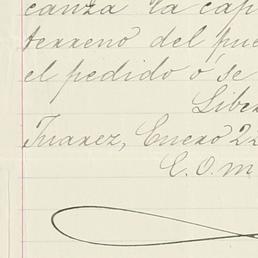 canza la cap
terreno del pue
el pedido ó se
Liber
Juarez, Enero 22
E. O. m